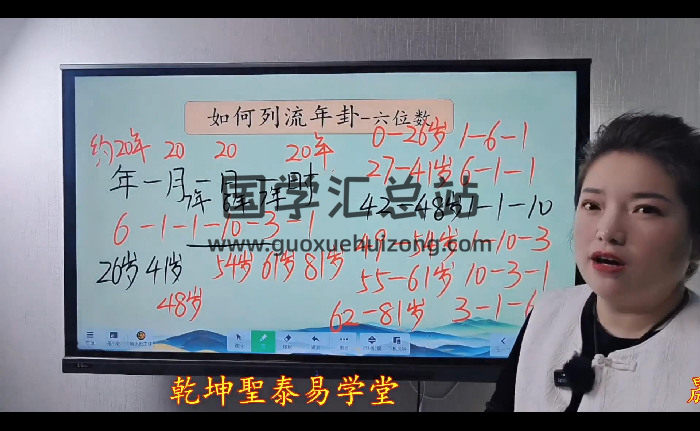 如何列流年卦-六位数
约20年 20 20 20年
0-26岁 1-6-1
年-月-日-时
27-41岁 6-1-1
7年 7年
国学汇总站
42-48岁 1-1-10
6-1-1-10-3-1
www.guoxuehuizong.com
49-54岁 1-10-3
26岁 41岁 54岁 61岁 81岁
55-61岁 10-3-1
48岁
62-81岁 3-1-6
乾坤聖泰易学堂